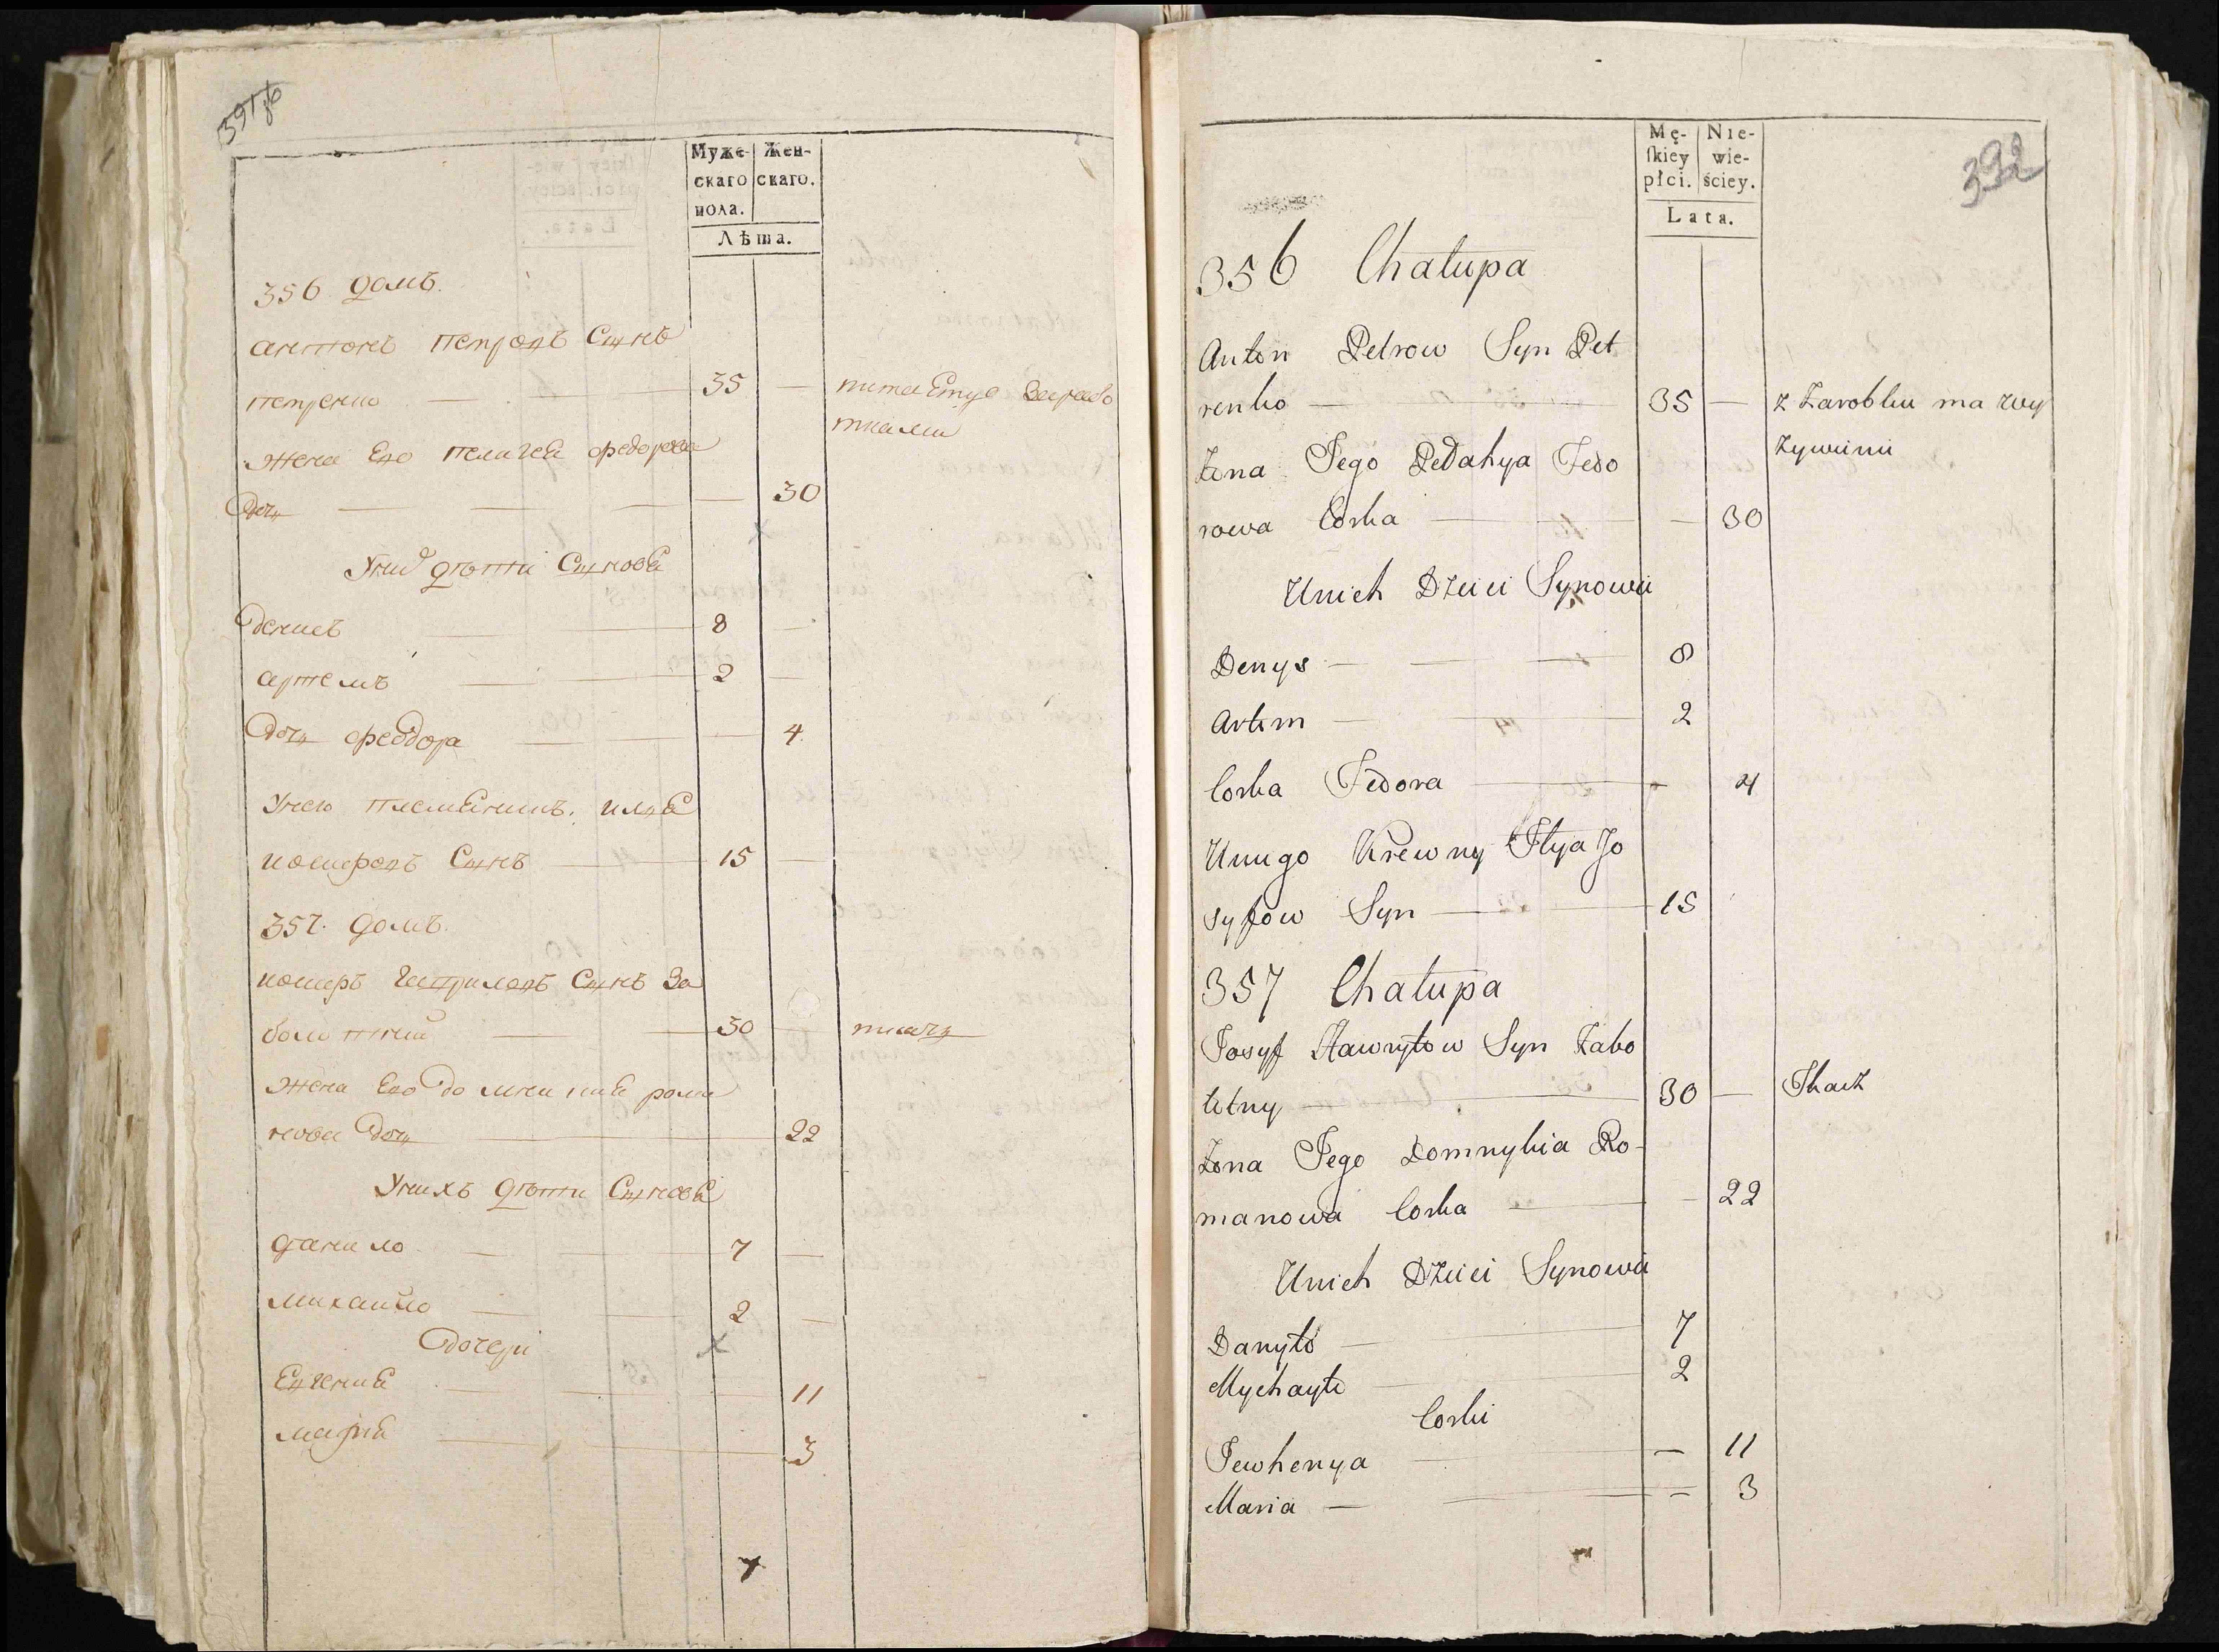 391об
Муже- Жен-
скаго скаго.
пола.
Лѣта.
356 домъ.
антонъ петровъ Сынъ
петренко — 35 —
питаетце Зарабо
тками
жена Его пелагея федорова
Доч — 30
Унихъ дѣти Сынове
Денисъ — 8 —
артемъ — 2 —
Доч феодора — 4
Унего племенникъ. илья
иосифовъ Сынъ — 15 —
357. домъ.
иосифъ гавриловъ Сынъ За
болотний — 30 — ткачъ
жена Его домникия рома
нова Доч — 22
Унихъ дѣти Сынове
данило — 7 —
михайло — 2 —
Дочери
Евгения — 11
мария — 3
392
Mę- Nie-
ſkiey wie-
płci. ściey.
Lata.
356 Chałupa
Anton Petrow Syn Pet
renko — 35 — z Zarobku ma wy
Żona Jego Pełahya Fedo
żywinii
rowa Corka — 30
Unich Dzieci Synowie
Denys — 8
Artem — 2
Corka Fedora — 4
Uniego Krewny Ilya Jo
syfow Syn — 15
357 Chałupa
Josyf Hawryłow Syn Zabo
łotny — 30 — Tkacz
Żona Jego Domnykia Ro-
manowa Corka — 22
Unich Dzieci Synowie
Danyło — 7
Mychayło — 2
Corki
Jewhenya — 11
Maria — 3